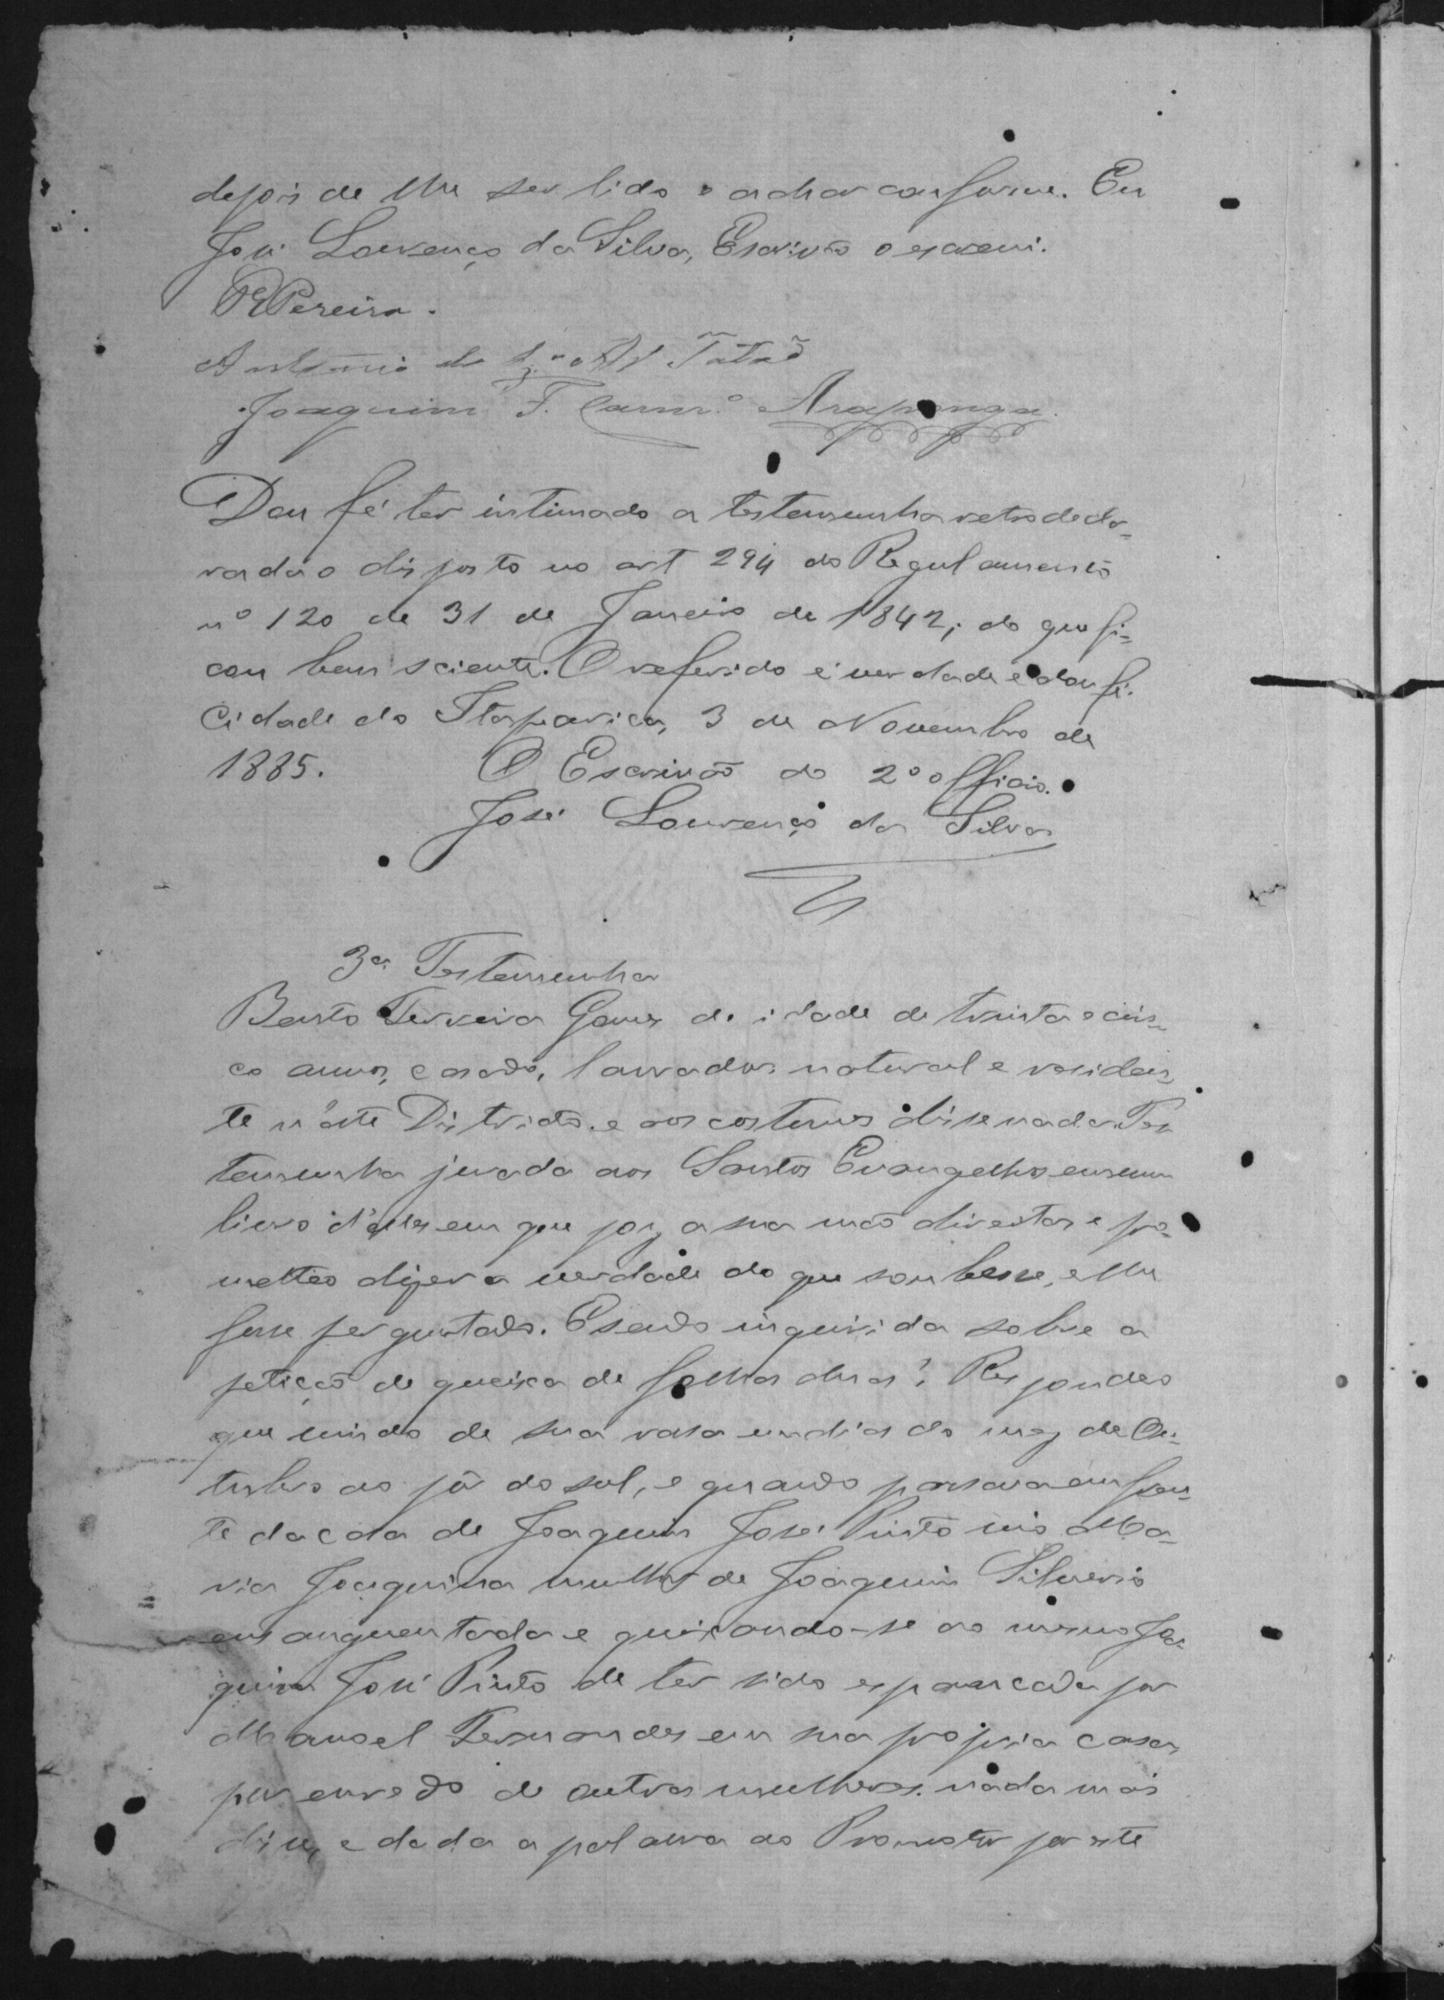 depois de lhe ser lido e achar conforme. Eu
José Lourenço da Silva, Escrivão o escrevi.
Pereira.
Antonio de
Joaquim F. Carnr.º Araponga
Dou fé ter intimado a testemunha retro decla-
rada o disposto no art 294 do Regulamento
nº 120 de 31 de Janeiro de 1842; do que fi-
cou bem sciente. O referido é verdade e dou fé.
Cidade de Itaparica, 3 de Novembro de
1885. O Escrivão do 2º officio.
José Lourenço da Silva
3ª Testemunha
Bento Gomes de idade de trinta e cin-
co annos, casado, lavrador natural e residen-
te n'este Districto. e aos costumes disse nada. Tes
temunha jurada aos Santos Evangelhos em um
livro d'elles em que poz a sua mão direita e pro-
metteo dizer a verdade do que soubesse, e lhe
fosse perguntado. E sendo inquirida sobre a
petição de queixa de folhas duas? Respondeo
que vindo de sua casa um dia do mez de Ou-
tubro ao pôr do sol, e quando passava em fren-
te da casa de Joaquim José Pinto vio Ma-
ria Joaquina mulher de Joaquim Silverio
ensanguentada e queixando-se ao mesmo Joa-
quim José Pinto de ter sido espancada por
Manoel Fernandes em sua propria casa
por enredo de outras mulheres. nada mais
disse, e dada a palavra ao Promotor por este